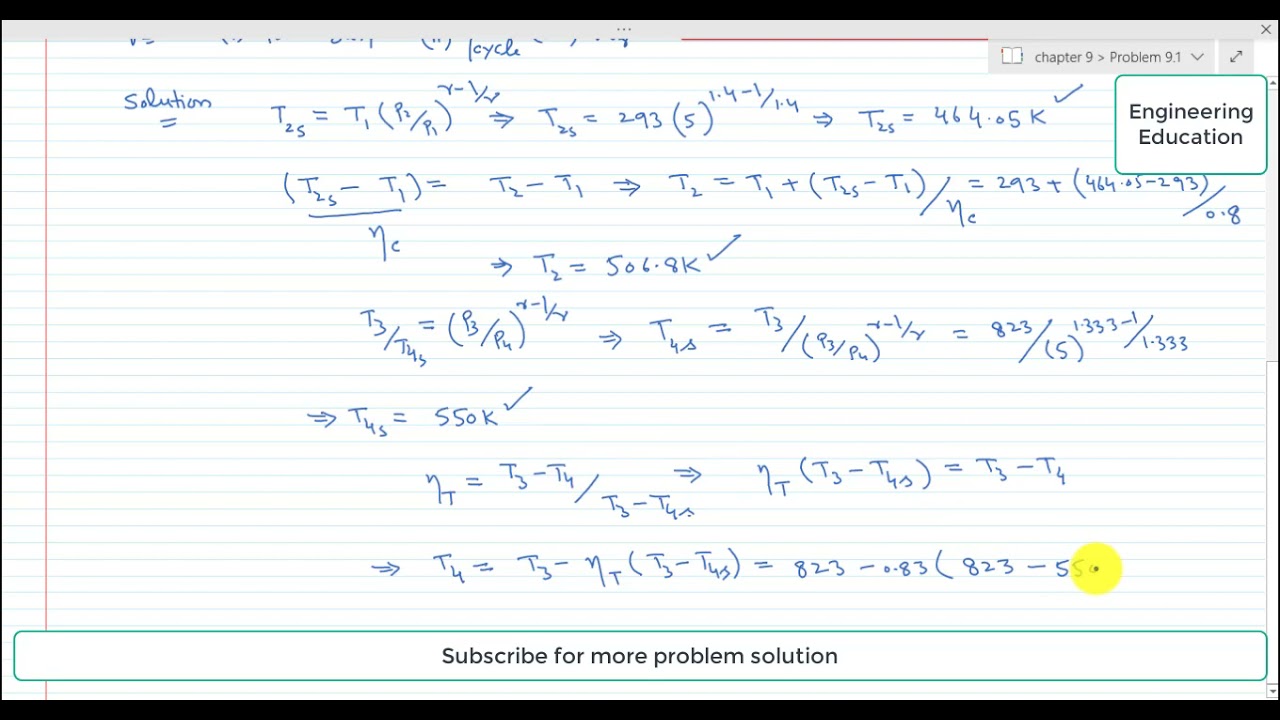 cycle
chapter 9 > Problem 9.1
Engineering
Education
Solution T2s = T1 (P2/P1)^r-1/r ⇒ T2s = 293 (5)^1.4-1/1.4 ⇒ T2s = 464.05 K ✓
(T2s - T1)/ηc = T2 - T1 ⇒ T2 = T1 + (T2s - T1)/ηc = 293 + (464.05-293)/0.8
⇒ T2 = 506.8K ✓
T3/T4s = (P3/P4)^r-1/r ⇒ T4s = T3/(P3/P4)^r-1/r = 823/(5)^1.333-1/1.333
⇒ T4s = 550K ✓
ηT = T3-T4/T3-T4s ⇒ ηT (T3-T4s) = T3-T4
⇒ T4 = T3 - ηT (T3-T4s) = 823 - 0.83 ( 823 - 550
Subscribe for more problem solution